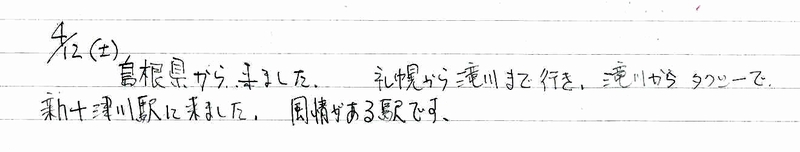 4/12(土)
島根県から来ました. 札幌から滝川まで行き, 滝川からタクシーで,
新十津川駅に来ました. 風情がある駅です、